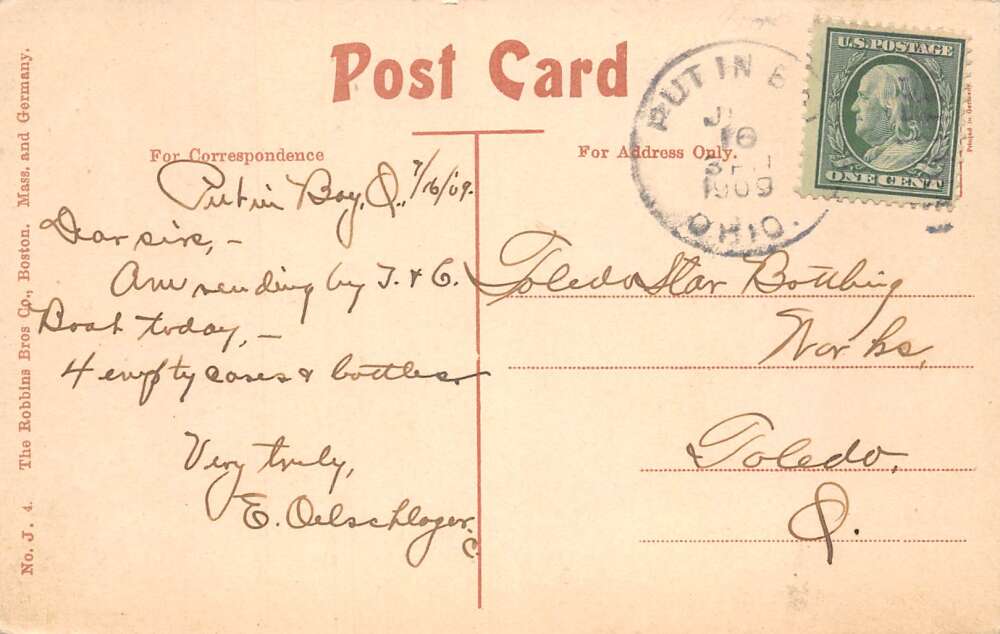 Post Card
For Correspondence
For Address Only.
Put in Bay, O., 7/16/09.
Dear sirs, –
Am sending by T. & C.
Boat today, –
4 empty cases & bottles.
Very truly,
E. Oelschlager.
Toledo Star Bottling
Works,
Toledo,
O.
PUT IN B
16
1909
OHIO.
U.S. POSTAGE
ONE CENT
Printed in Germany
No. J. 4. The Robbins Bros Co., Boston. Mass. and Germany.